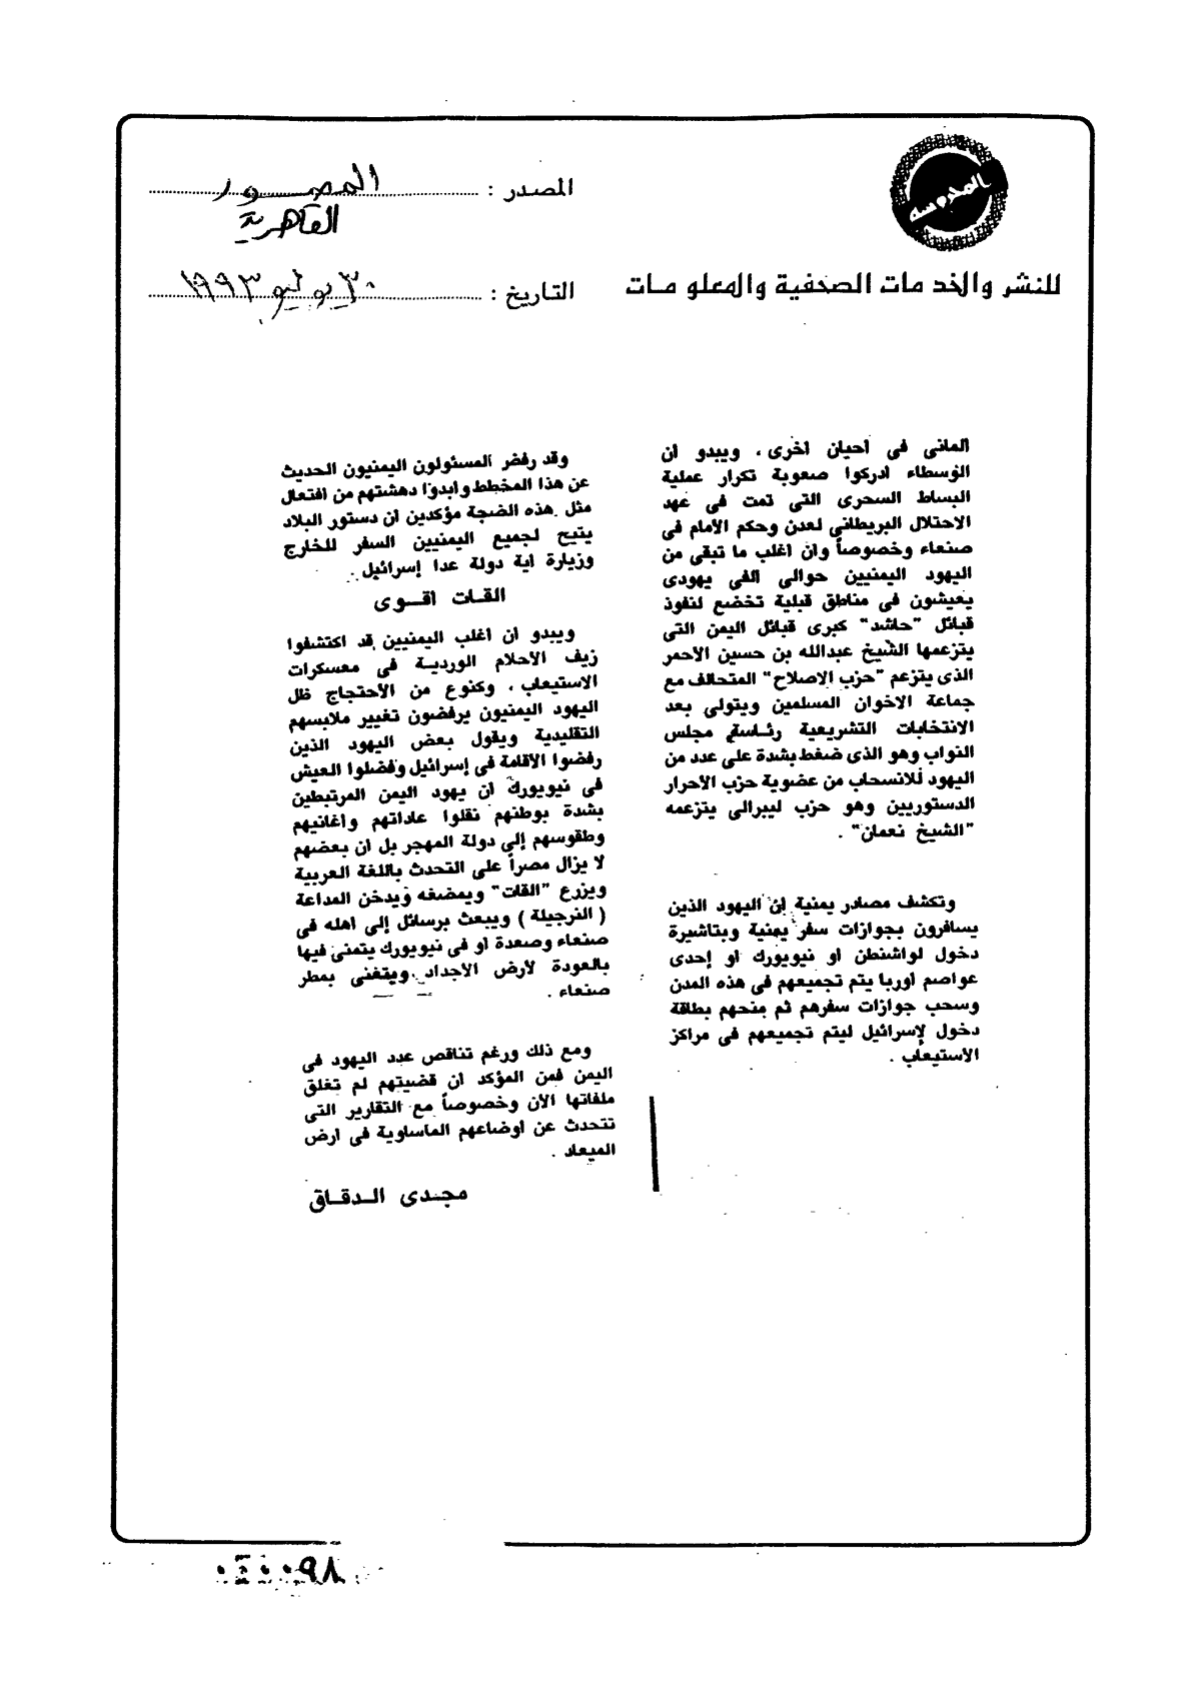 المحروسة
للنشر والخدمات الصحفية والمعلومات
المصدر : المصور
القاهرية
التاريخ : ٣٠ يوليو ١٩٩٣
المانى فى احيان اخرى ، ويبدو ان
الوسطاء ادركوا صعوبة تكرار عملية
البساط السحرى التى تمت فى عهد
الاحتلال البريطانى لعدن وحكم الامام فى
صنعاء وخصوصاً وان اغلب ما تبقى من
اليهود اليمنيين حوالى الفى يهودى
يعيشون فى مناطق قبلية تخضع لنفوذ
قبائل "حاشد" كبرى قبائل اليمن التى
يتزعمها الشيخ عبدالله بن حسين الاحمر
الذى يتزعم "حزب الاصلاح" المتحالف مع
جماعة الاخوان المسلمين ويتولى بعد
الانتخابات التشريعية رئاسة مجلس
النواب وهو الذى ضغط بشدة على عدد من
اليهود للانسحاب من عضوية حزب الاحرار
الدستوريين وهو حزب ليبرالى يتزعمه
"الشيخ نعمان" .
وتكشف مصادر يمنية إن اليهود الذين
يسافرون بجوازات سفر يمنية وبتاشيرة
دخول لواشنطن او نيويورك او إحدى
عواصم اوربا يتم تجميعهم فى هذه المدن
وسحب جوازات سفرهم ثم منحهم بطاقة
دخول لإسرائيل ليتم تجميعهم فى مراكز
الاستيعاب .
وقد رفض المسئولون اليمنيون الحديث
عن هذا المخطط وابدوا دهشتهم من افتعال
مثل هذه الضجة مؤكدين ان دستور البلاد
يتيح لجميع اليمنيين السفر للخارج
وزيارة اية دولة عدا إسرائيل .
القات اقوى
ويبدو ان اغلب اليمنيين قد اكتشفوا
زيف الاحلام الوردية فى معسكرات
الاستيعاب ، وكنوع من الاحتجاج ظل
اليهود اليمنيون يرفضون تغيير ملابسهم
التقليدية ويقول بعض اليهود الذين
رفضوا الاقامة فى إسرائيل وفضلوا العيش
فى نيويورك ان يهود اليمن المرتبطين
بشدة بوطنهم نقلوا عاداتهم واغانيهم
وطقوسهم إلى دولة المهجر بل ان بعضهم
لا يزال مصراً على التحدث باللغة العربية
ويزرع "القات" ويمضغه ويدخن المداعة
( النرجيلة ) ويبعث برسائل إلى اهله فى
صنعاء وصعدة او فى نيويورك يتمنى فيها
بالعودة لارض الاجداد ويتغنى بمطر
صنعاء .
ومع ذلك ورغم تناقص عدد اليهود فى
اليمن فمن المؤكد ان قضيتهم لم تغلق
ملفاتها الان وخصوصاً مع التقارير التى
تتحدث عن اوضاعهم الماساوية فى ارض
الميعاد .
مجدى الدقاق